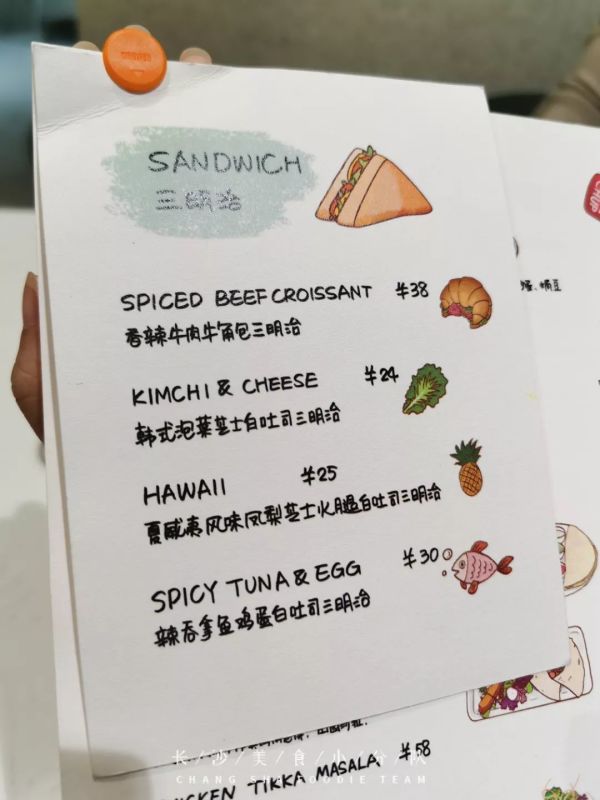 SANDWICH
三明治
SPICED BEEF CROISSANT ¥38
香辣牛肉牛角包三明治
KIMCHI & CHEESE ¥24
韩式泡菜芝士白吐司三明治
HAWAII ¥25
夏威夷风味凤梨芝士火腿白吐司三明治
SPICY TUNA & EGG ¥30
辣吞拿鱼鸡蛋白吐司三明治
¥58
CHICKEN TIKKA MASALA
长/沙/美/食/小/分/队
CHANG SHA FOODIE TEAM